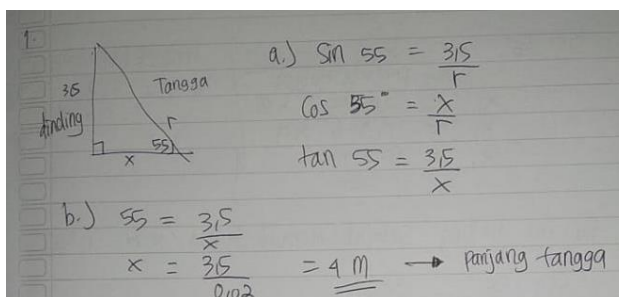 1.
35
dinding
Tangga
r
55
x
a.) Sin 55 = 3,5 / r
Cos 55° = x / r
tan 55 = 3,5 / x
b.) 55 = 3,5 / x
x = 3,5 / 0,02 = 4 M → panjang tangga